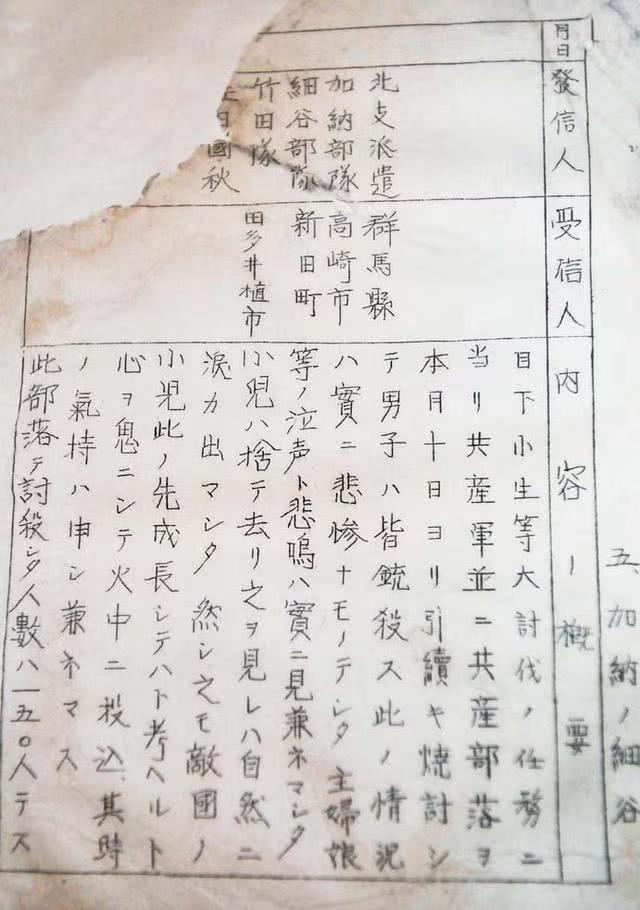 五、加納ノ細谷
月日
發信人
受信人
内容ノ概要
北支派遣
加納部隊
細谷部隊
竹田隊
國秋
群馬縣
高崎市
新田町
田多井植市
目下小生等大討伐ノ任務ニ
当リ共産軍並ニ共産部落ヲ
本月十日ヨリ引續キ焼討シ
テ男子ハ皆銃殺ス此ノ情況
ハ實ニ悲惨ナモノテシタ主婦娘
等ノ泣声ト悲鳴ハ實ニ見兼ネマシタ
小児ハ捨テ去リ之ヲ見レハ自然ニ
涙カ出マシタ然シ之モ敵國ノ
小児此ノ先成長シテハト考ヘルト
心ヲ鬼ニシテ火中ニ投込、其時
ノ氣持ハ申シ兼ネマス
此部落テ討殺シタ人數ハ一五〇人テス